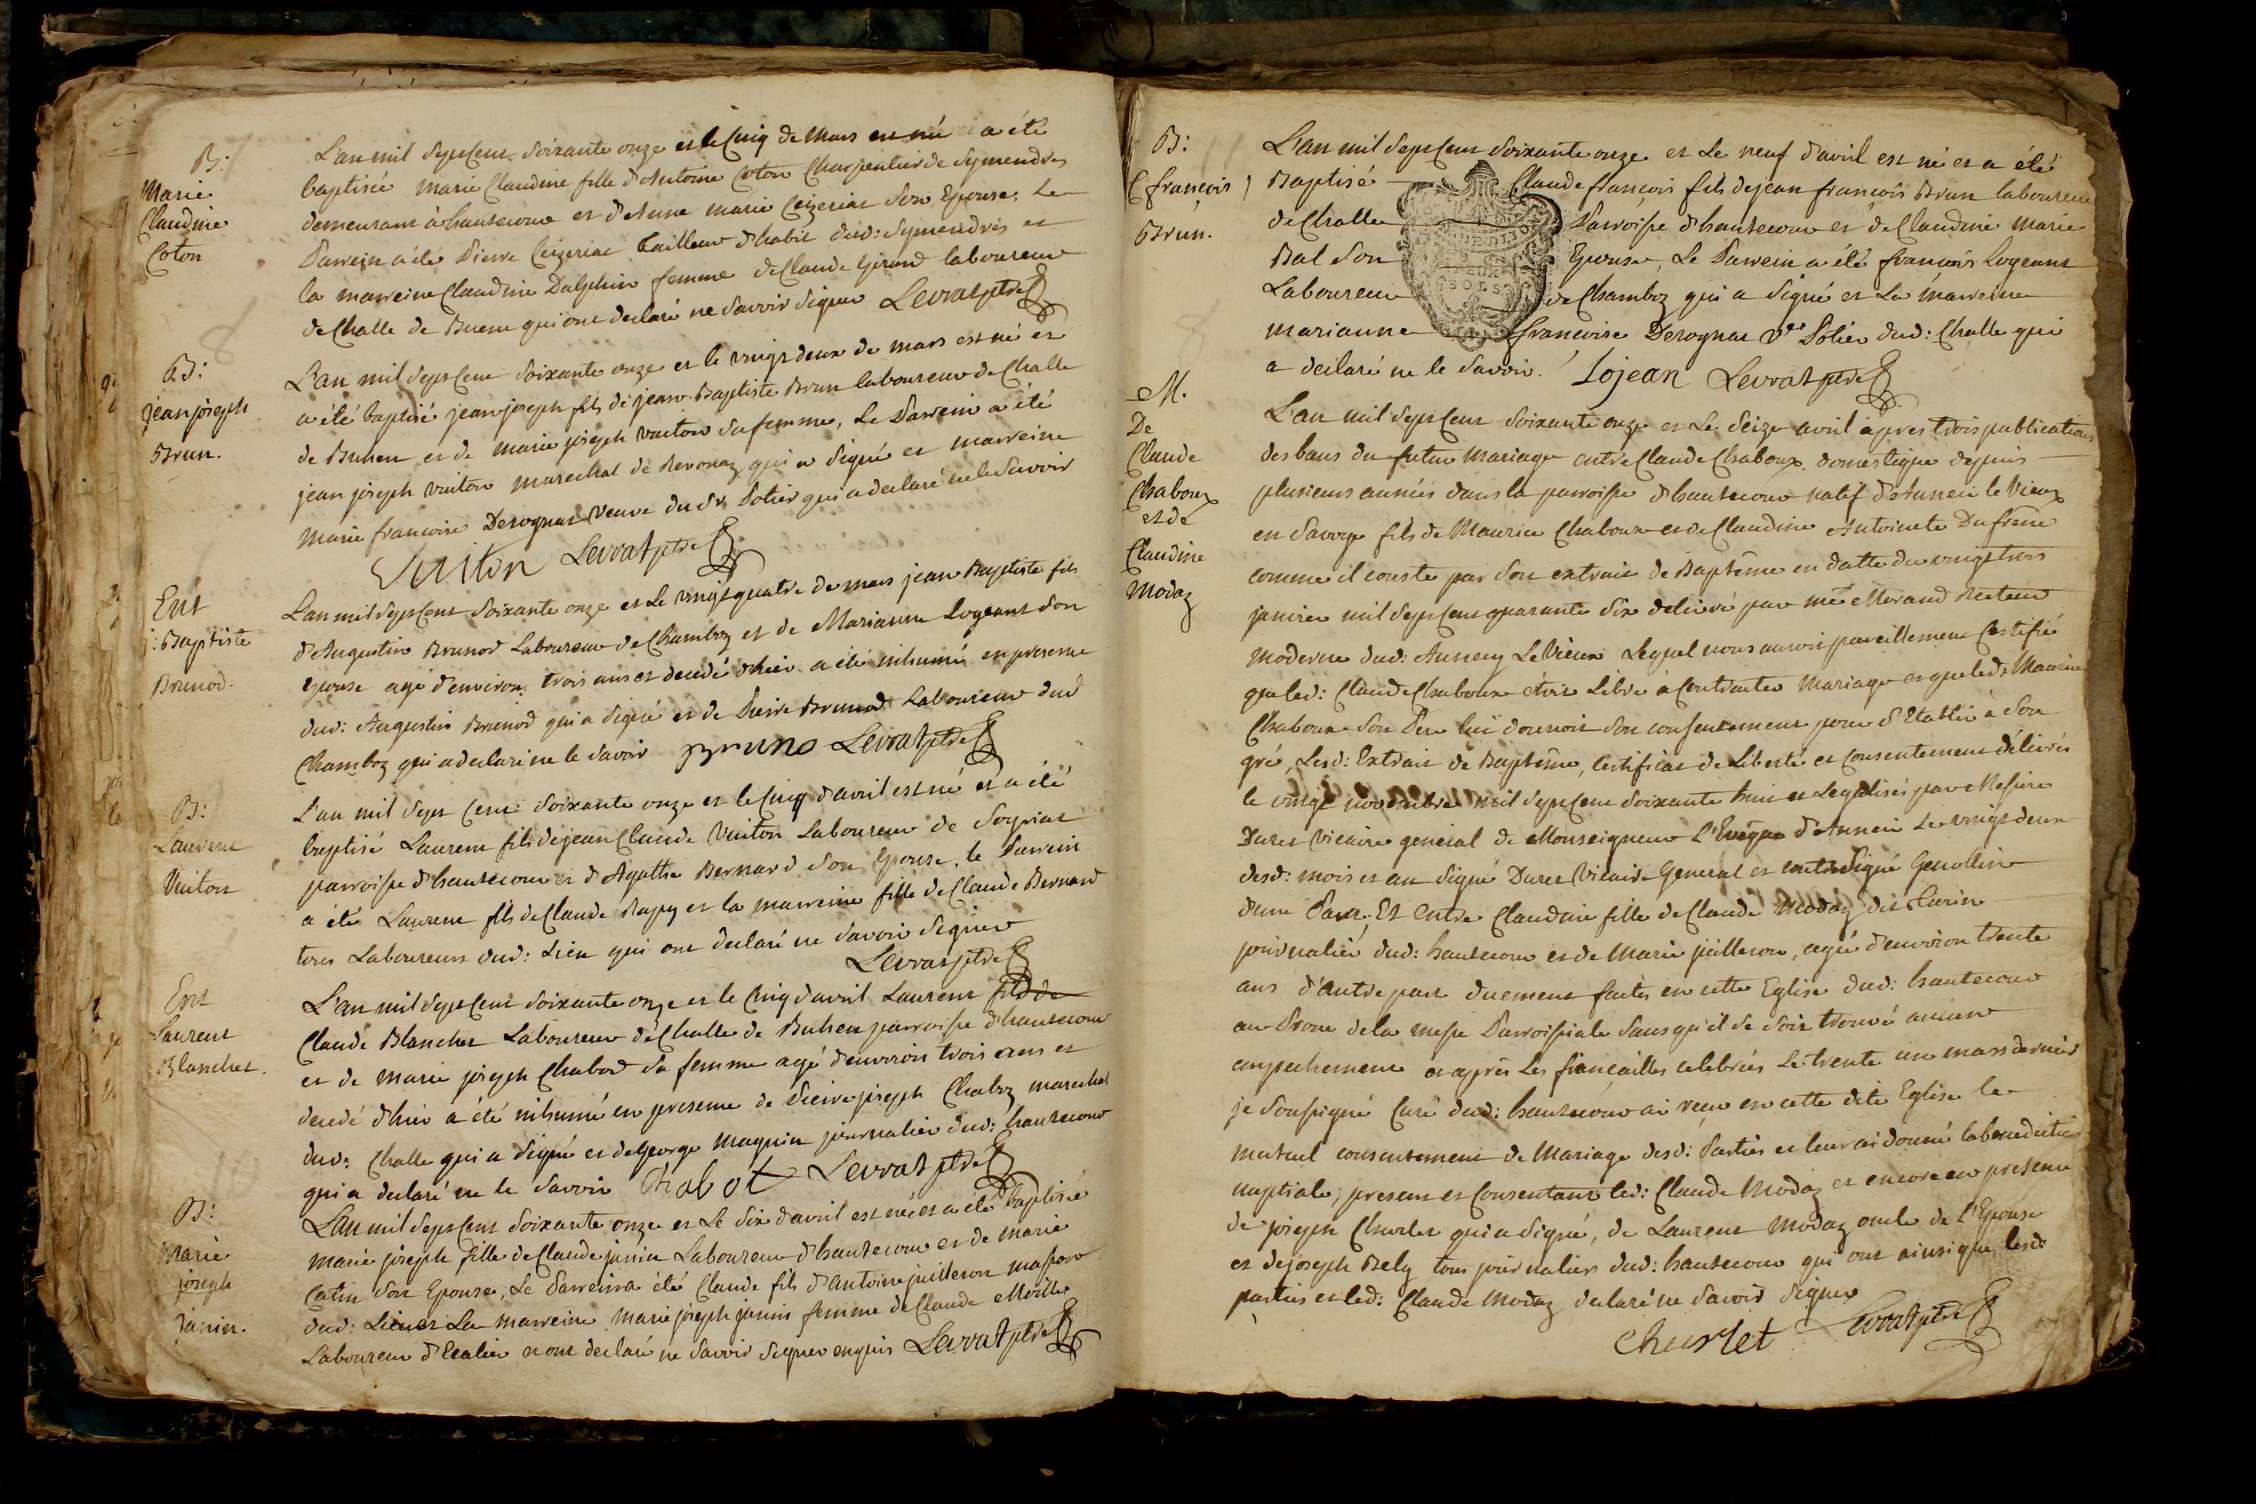 B:
Marie
Claudine
Coton
L'an mil sept Cent soixante onze et le Cinq de Mars est né a été
baptisée marie Claudine fille d'Antoine Coton Charpentier de Symendres
demeurant à hautecour et d'Anne marie Ceizeriat son Epouse, Le
Parrein a été Pierre Ceizeriat tailleur d'habit dud: Symendres et
la marreine Claudine Dalphin femme de Claude Girard laboureur
de Challe de Buenc qui ont declaré ne savoir signer Levrat ptre
B:
jean joseph
Brun.
L'an mil sept Cent soixante onze et le vingt deux de mars est né et
a été baptisé jean joseph fils de jean Baptiste Brun laboureur de Challe
de Buhen et de marie joseph vuiton sa femme, Le Parrein a été
jean joseph vuiton marechal de Revonaz qui a signé et marreine
marie francoise Derognat veuve du Sr Sotier qui a declaré ne le savoir
Vuiton Levrat ptre
Ent
j: Baptiste
Brunod.
L'an mil sept Cent soixante onze et Le vingt quatre de mars jean Baptiste fils
d'Augustin Brunod Laboureur de Chamboz et de Marianne Logeant son
epouse agé d'environ trois ans et decedé d'hier a été inhumé en presence
dud: Augustin Brunod qui a signé et de Pierre Brunod Laboureur dud
Chamboz qui a declaré ne le savoir Bruno Levrat ptre
B:
Laurent
Vuiton
L'an mil sept Cent soixante onze et le Cinq d'avril est né et a été
baptisé Laurent fils de jean Claude Vuiton Laboureur de Soyriat
parroisse d'hautecour et d'Agathe Bernard son Epouse, le Parrein
a été Laurent fils de Claude Rapy et la marreine fille de Claude Bernard
tous Laboureurs dud: Lieu qui ont declaré ne savoir signer
Levrat ptre
Ent
Laurent
Blanchet.
L'an mil sept Cent soixante onze et le Cinq d'avril Laurent fils de
Claude Blanchet Laboureur de Challe de Buhen parroisse d'hautecour
et de marie joseph Chabod sa femme agé d'environ trois ans et
decedé d'hier a été inhumé en presence de Pierre joseph Chaboz marechal
dud: Challe qui a signé et de George Magnin journalier dud: hautecour
qui a declaré ne le savoir Chabot Levrat ptre
B:
Marie
joseph
janin.
L'an mil sept Cent soixante onze et Le six d'avril est née et a été baptisée
marie joseph fille de Claude janin Laboureur d'hautecour et de marie
Catin son Epouse, Le Parrein a été Claude fils d'antoine juilleron masson
dud: Lieu et La marreine marie joseph janin femme de Claude Moille
Laboureur d'Ecalier n'ont declaré ne savoir signer enquis Levrat ptre
B:
C françois
Brun.
L'an mil sept Cent soixante onze et Le neuf d'avril est né et a été
Baptisé Claude francois fils de jean francois Brun laboureur
de Challe Parroisse d'hautecour et de Claudine marie
Bal son Epouse, Le Parrein a été francois Logeant
Laboureur de Chamboz qui a signé et La marreine
marianne francoise Derognat Ve Sotier dud: Challe qui
a declaré ne le savoir. Lojean Levrat ptre
M.
De
Claude
Chaboux
et de
Claudine
Modaz
L'an mil sept Cent soixante onze et Le seize avril apres trois publications
des bans du futur Mariage entre Claude Chaboux domestique depuis
plusieurs années dans la parroisse d'hautecour natif d'Anneci le Vieux
en Savoye fils de Maurice Chaboux et de Claudine Antoinete Dufrene
comme il conste par son extrait de Baptême en datte du vingt trois
janvier mil sept Cent quarante six delivré par mre Morand Recteur
moderne dud: Annecy Le Vieux Lequel nous auroit pareillement Certifié
que led: Claude Chaboux étoit Libre à Contracter Mariage et que led: Maurice
Chaboux son Pere lui donnoit son consentement pour s'Etablir à son
gré, Lesd: Extrait de Baptême, Certificat de Liberté et Consentement délivrés
le vingt novembre mil sept Cent soixante huit et Legalisés par Messire
Duret Vicaire general de Monseigneur L'Evêque d'Anneci Le vingt deux
desd: mois et an signé Duret Vicaire General et contresigné Genollin
d'une Part. Et Entre Claudine fille de Claude Modaz dit Turin
journalier dud: hautecour et de Marie juilleron, agée d'environ trente
ans d'Autre part duement faites en cette Eglise dud: hautecour
au Prone de la messe Parroissiale sans qu'il se soit trouvé aucun
empechement et après Les fiançailles celebrées Le trente un mars dernier
je soussigné Curé dud: hautecour ai reçu en cette dite Eglise le
mutuel consentement de Mariage desd: Parties et leur ai donné la benediction
nuptiale, present et Consentant led: Claude Modaz et encore en presence
de joseph Churlet qui a signé, de Laurent Modaz oncle de L'Epouse
et de joseph Bely tous journaliers dud: hautecour qui ont ainsi que lesd:
parties et led: Claude Modaz declaré ne savoir signer
Churlet Levrat ptre